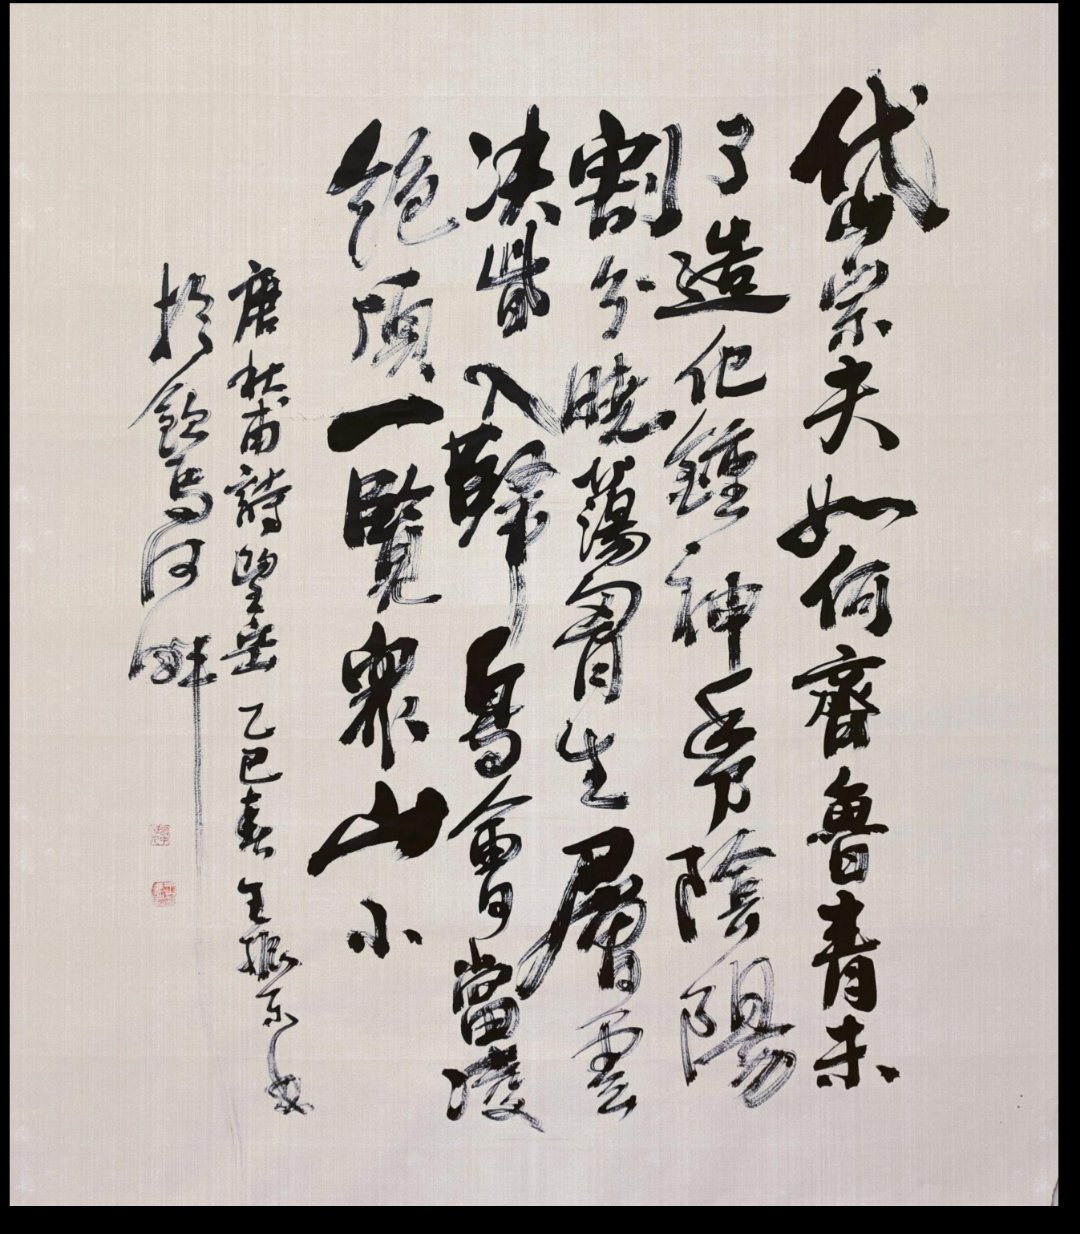 岱宗夫如何齊魯青未
了造化鍾神秀陰陽
割分曉蕩胷生層雲
决眥入歸鳥會當凌
絕頂一覽衆山小
唐杜甫詩望岳 乙巳春 王振东书
於飲馬河畔